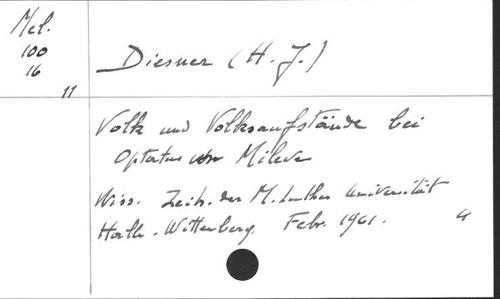 Mel.
100
16
11
Diesner (H. J.)
Volk und Volksaufstände bei
Optatus von Mileve
Wiss. Zeits. der M. Luther Universität
Halle-Wittenberg. Febr. 1961. 4